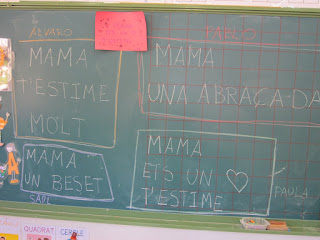 ÁLVARO
MAMA
T'ESTIME
MOLT
PABLO
MAMA
UNA ABRAÇADA
MAMA
UN BESET
SAUL
MAMA
ETS UN
T'ESTIME
PAULA
QUADRAT
CERCLE